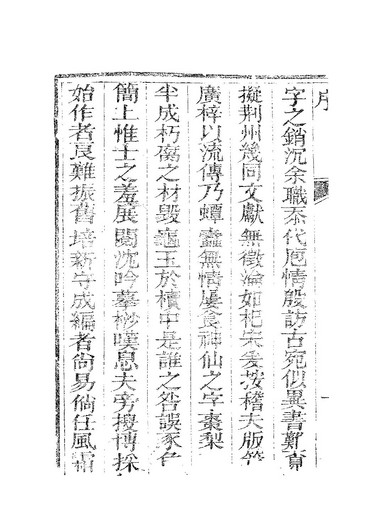 序
字之銷沉余職忝代庖情殷訪古宛似異書鄭賁
擬荆州幾同文獻無徵淪如杞宋爰按稽夫版
廣梓以流傳乃蟫蠹無情屢食神仙之字棗梨
半成朽腐之材毀龜玉於櫝中是誰之咎誤豕
簡上惟士之羞展閱沈吟摹抄嘆息夫旁搜博採
始作者良難振舊培新守成編者尙易倘任風霜